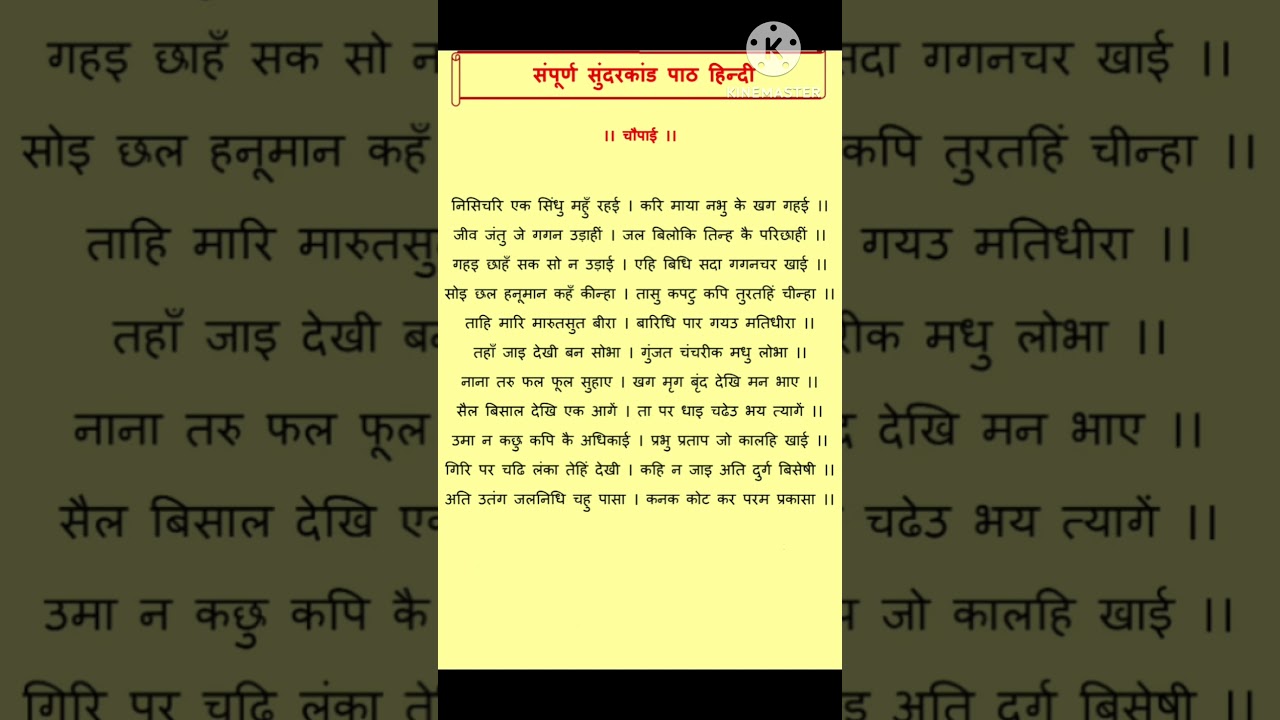 संपूर्ण सुंदरकांड पाठ हिन्दी
K
KINEMASTER
।। चौपाई ।।
निसिचरि एक सिंधु महुँ रहई । करि माया नभु के खग गहई ।।
जीव जंतु जे गगन उड़ाहीं । जल बिलोकि तिन्ह कै परिछाहीं ।।
गहइ छाहँ सक सो न उड़ाई । एहि बिधि सदा गगनचर खाई ।।
सोइ छल हनूमान कहँ कीन्हा । तासु कपटु कपि तुरतहिं चीन्हा ।।
ताहि मारि मारुतसुत बीरा । बारिधि पार गयउ मतिधीरा ।।
तहाँ जाइ देखी बन सोभा । गुंजत चंचरीक मधु लोभा ।।
नाना तरु फल फूल सुहाए । खग मृग बृंद देखि मन भाए ।।
सैल बिसाल देखि एक आगें । ता पर धाइ चढेउ भय त्यागें ।।
उमा न कछु कपि कै अधिकाई । प्रभु प्रताप जो कालहि खाई ।।
गिरि पर चढि लंका तेहिं देखी । कहि न जाइ अति दुर्ग बिसेषी ।।
अति उतंग जलनिधि चहु पासा । कनक कोट कर परम प्रकासा ।।